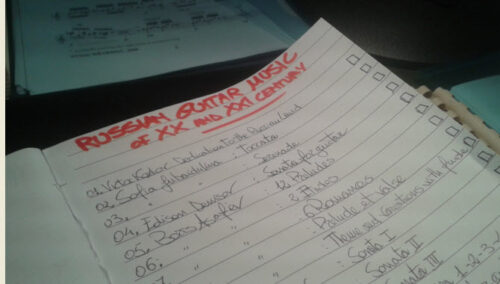 RUSSIAN GUITAR MUSIC
OF XX AND XXI CENTURY
01. Victor Kozlov Declaration To the Russian
02. Sofia Gubaidulina : Toccata
03. " : Serenade
04. Edison Denisov : Sonata for guitar
05. Boris Asafiev : 12 Preludes
06. " " : 2
7. " " : 6 Romances
: Prelude et Valse
: Theme and Variations with
: Sonata I
: Sonata II
Sonata III
1-2-3-4